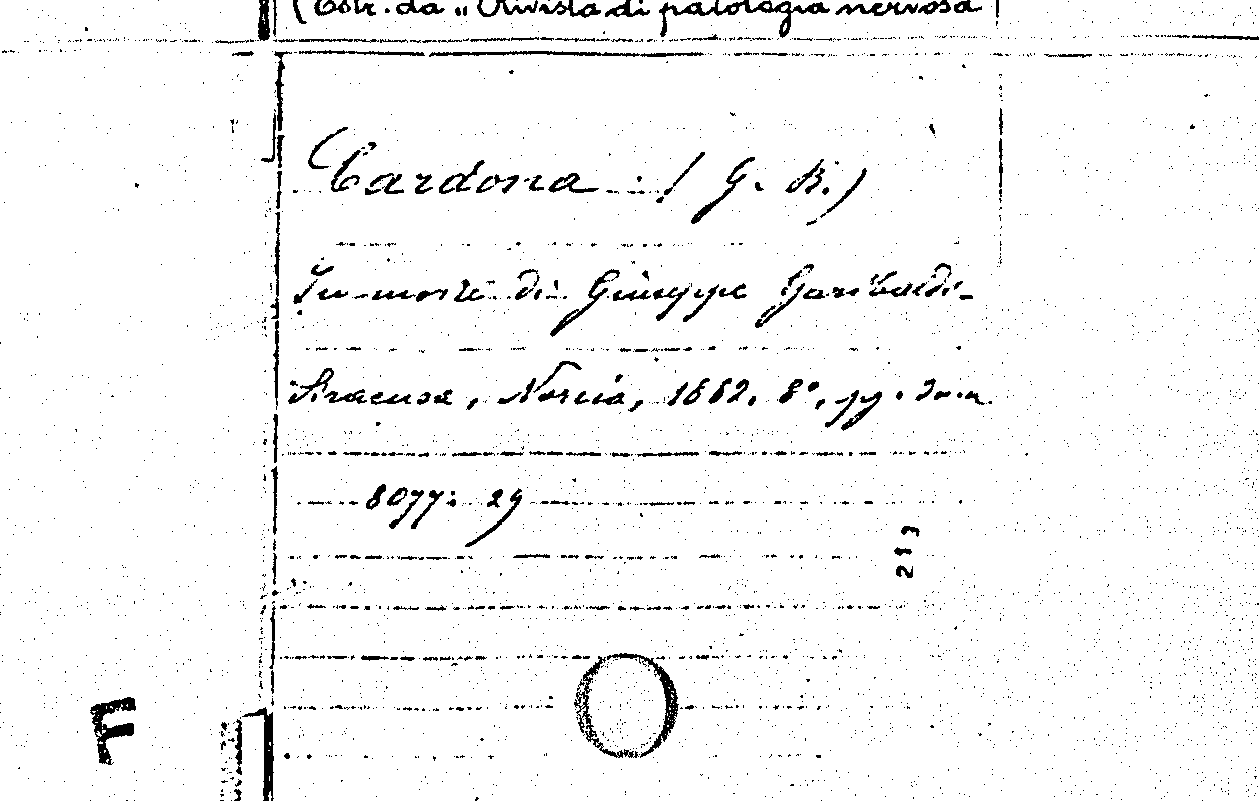 (Estr. da „ Rivista di patologia nervosa
Cardona (G. B.)
In morte di Giuseppe Garibaldi-
Siracusa, Norcia, 1882. 8°, pp.
8077: 29
213
F